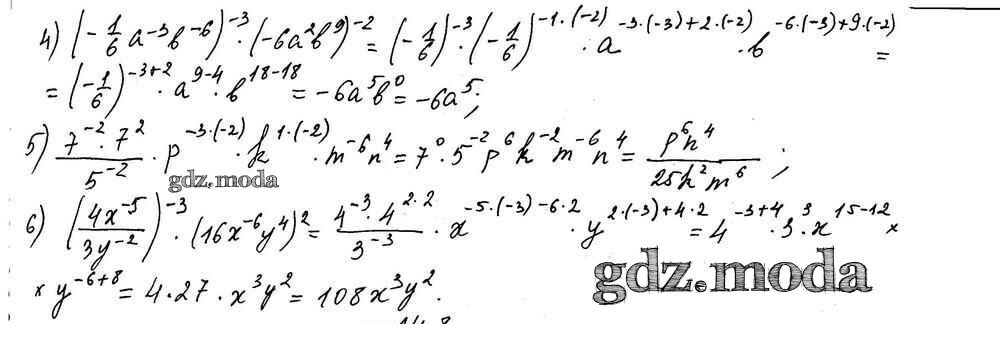 4) (-1/6 a^-3 b^-6)^-3 · (-6a^2 b^9)^-2 = (-1/6)^-3 · (-1/6)^-1·(-2) · a^-3·(-3)+2·(-2) · b^-6·(-3)+9·(-2) =
= (-1/6)^-3+2 · a^9-4 · b^18-18 = -6a^5 b^0 = -6a^5;
5) 7^-2 · 7^2 / 5^-2 · p^-3·(-2) · k^1·(-2) · m^-6 n^4 = 7^0 · 5^-2 p^6 k^-2 m^-6 n^4 = p^6 n^4 / 25k^2 m^6 ;
gdz.moda
6) (4x^-5 / 3y^-2)^-3 · (16x^-6 y^4)^2 = 4^-3 · 4^2·2 / 3^-3 · x^-5·(-3)-6·2 · y^2·(-3)+4·2 = 4^-3+4 · 3^3 · x^15-12 ×
gdz.moda
× y^-6+8 = 4·27·x^3 y^2 = 108x^3 y^2.